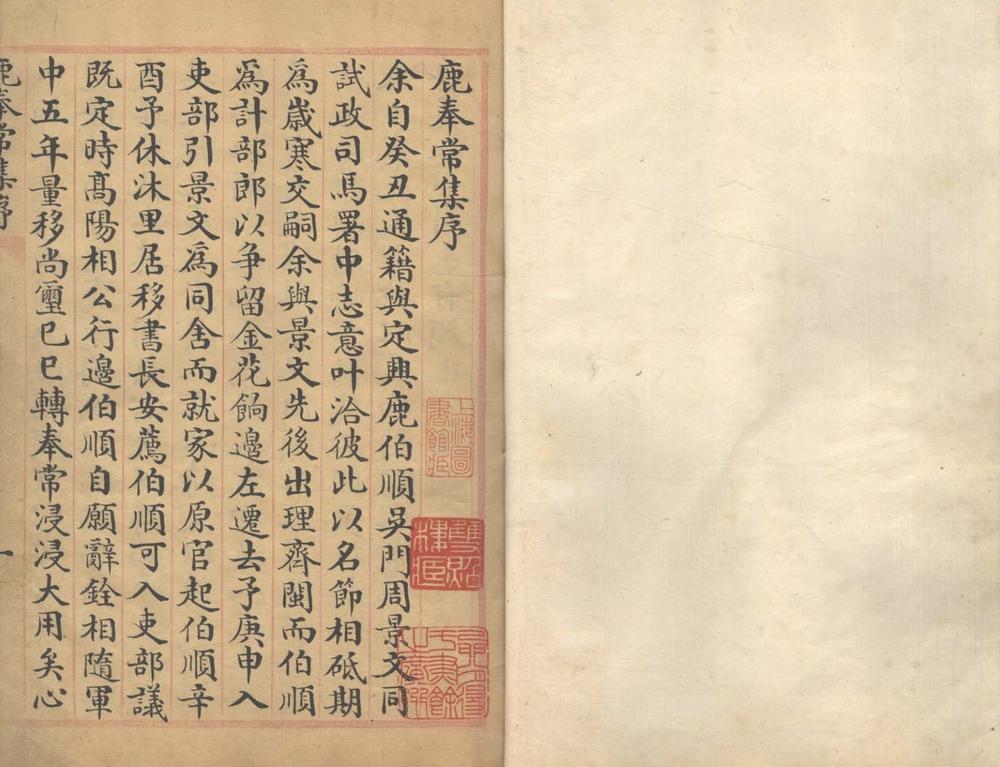 鹿奉常集序
余自癸丑通籍與定興鹿伯順吳門周景文同
試政司馬署中志意叶洽彼此以名節相砥期
爲嵗寒交嗣余與景文先後出理齊閩而伯順
爲計部郎以争留金花餉邉左遷去予庚申入
吏部引景文爲同舍而就家以原官起伯順辛
酉予休沐里居移書長安薦伯順可入吏部議
既定時髙陽相公行邉伯順自願辭銓相隨軍
中五年量移尚璽巳巳轉奉常浸浸大用矣心
鹿奉常集序
一
上海圖書館藏